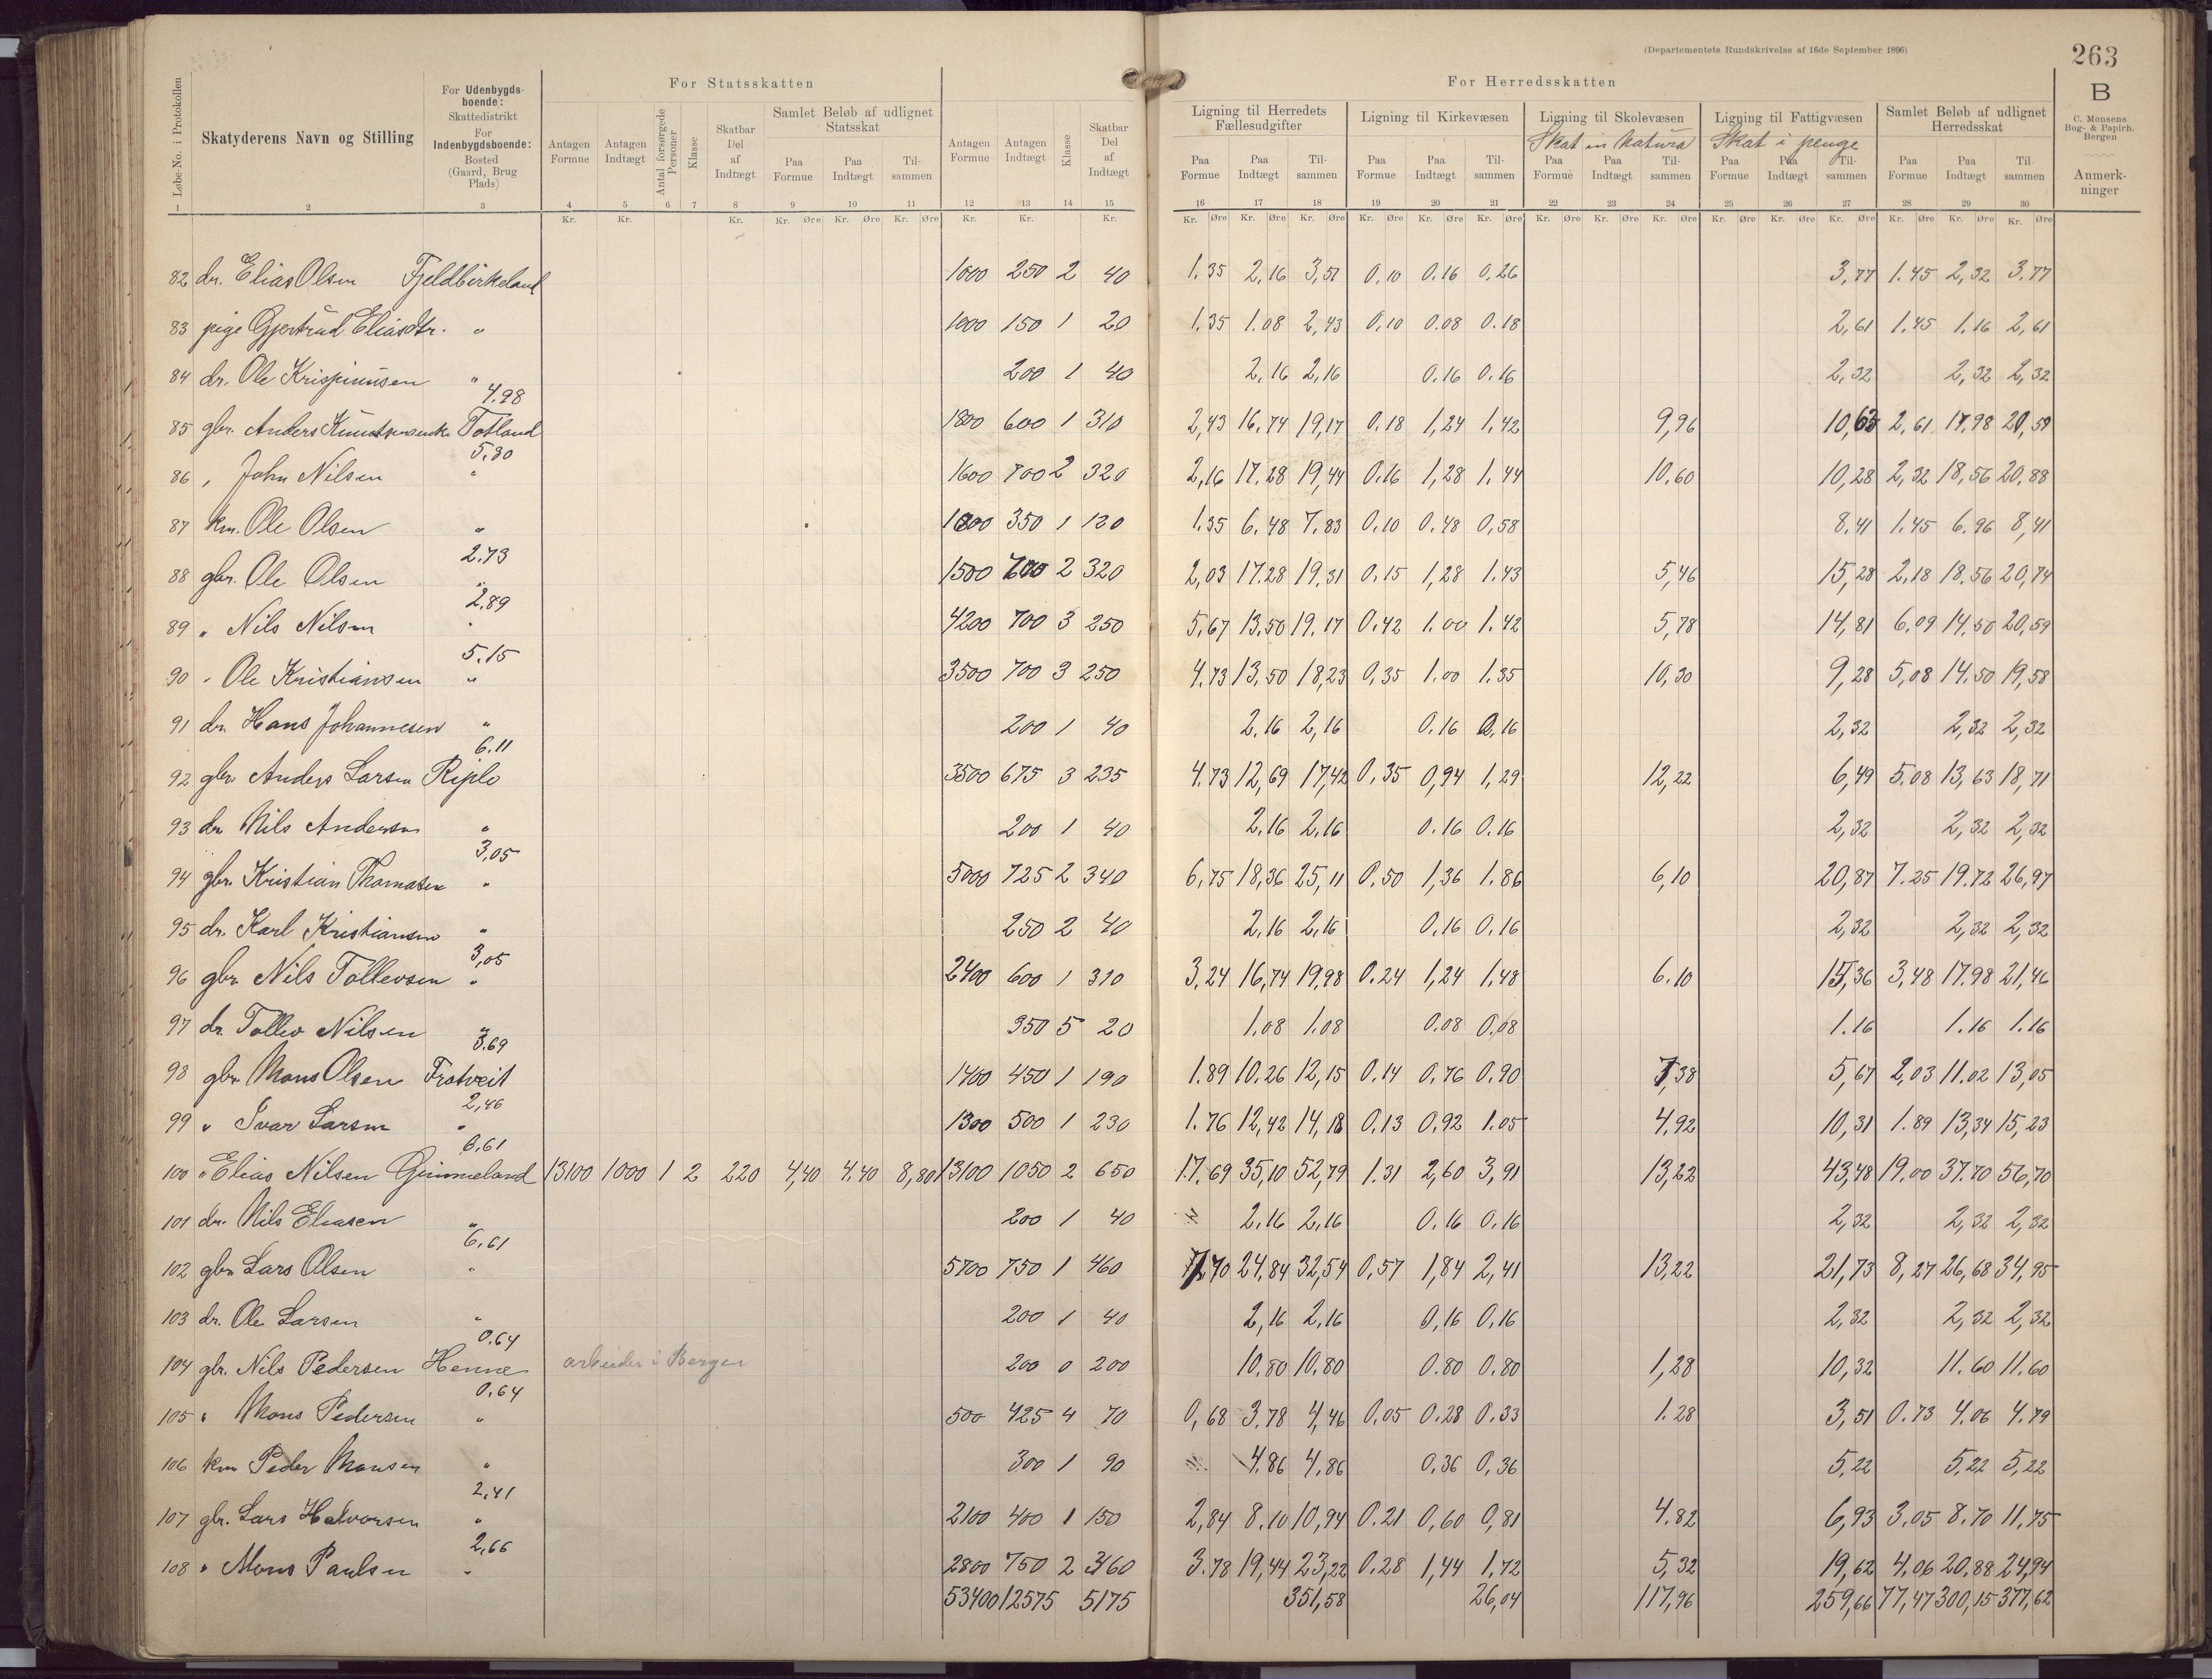 (Departementets Rundskrivelse af 16de September 1896)
263
B
C. Monsens Bog- & Papirh. Bergen
Anmerkninger
For Statsskatten
For Herredsskatten
Løbe-No. i Protokollen
Skatyderens Navn og Stilling
For Udenbygdsboende: Skattedistrikt For Indenbygdsboende: Bosted (Gaard, Brug Plads)
Antagen Formue
Antagen Indtægt
Antal forsørgede Personer
Klasse
Skatbar Del af Indtægt
Samlet Beløb af udlignet Statsskat
Paa Formue Paa Indtægt Tilsammen
Antagen Formue
Antagen Indtægt
Klasse
Skatbar Del af Indtægt
Ligning til Herredets Fællesudgifter
Paa Formue Paa Indtægt Tilsammen
Ligning til Kirkevæsen
Paa Formue Paa Indtægt Tilsammen
Ligning til Skolevæsen
Skat in Natura
Paa Formue Paa Indtægt Tilsammen
Ligning til Fattigvæsen
Skat i penge
Paa Formue Paa Indtægt Tilsammen
Samlet Beløb af udlignet Herredsskat
Paa Formue Paa Indtægt Tilsammen
1 2 3 4 5 6 7 8 9 10 11 12 13 14 15 16 17 18 19 20 21 22 23 24 25 26 27 28 29 30
Kr. Kr. Kr. Kr. Øre Kr. Øre Kr. Øre Kr. Kr. Kr. Kr. Øre Kr. Øre Kr. Øre Kr. Øre Kr. Øre Kr. Øre Kr. Øre Kr. Øre Kr. Øre Kr. Øre Kr. Øre Kr. Øre Kr. Øre Kr. Øre Kr. Øre
82 dr. Elias Olsen Fjeldbirkeland 1000 250 2 40 1.35 2,16 3,51 0,10 0.16 0,26 3,77 1.45 2,32 3.77
83 pige Gjertrud Eliasdtr. " 1000 150 1 20 1,35 1.08 2,43 0,10 0.08 0.18 2,61 1.45 1.16 2,61
84 dr. Ole Krispinusen " 200 1 40 2,16 2,16 0.16 0.16 2,32 2,32 2,32
4.98
85 gbr. Anders Knutsen Totland 1800 600 1 310 2,43 16.74 19,17 0.18 1,24 1.42 9,96 10,63 2,61 17.98 20,59
5.30
86 " John Nilsen " 1600 700 2 320 2,16 17.28 19,44 0.16 1,28 1.44 10.60 10,28 2,32 18,56 20.88
87 km. Ole Olsen " 1000 350 1 120 1.35 6.48 7.83 0.10 0.48 0,58 8.41 1.45 6.96 8,41
2.73
88 gbr. Ole Olsen " 1500 700 2 320 2,03 17.28 19.31 0.15 1,28 1.43 5,46 15,28 2,18 18,56 20,74
2.89
89 " Nils Nilsen " 4200 700 3 250 5.67 13.50 19.17 0.42 1.00 1.42 5,78 14,81 6.09 14.50 20,59
5.15
90 " Ole Kristiansen " 3500 700 3 250 4.73 13,50 18,23 0,35 1.00 1.35 10,30 9,28 5,08 14.50 19,58
91 dr. Hans Johannesen " 200 1 40 2.16 2,16 0.16 0.16 2,32 2,32 2,32
6.11
92 gbr. Anders Larsen Riple 3500 675 3 235 4.73 12,69 17,42 0,35 0,94 1,29 12,22 6,49 5.08 13,63 18,71
93 dr. Nils Andersen " 200 1 40 2.16 2.16 0.16 0.16 2,32 2,32 2,32
3,05
94 gbr. Kristian Thomasen " 5000 725 2 340 6,75 18,36 25,11 0.50 1,36 1.86 6,10 20,87 7.25 19.72 26,97
95 dr. Karl Kristiansen " 250 2 40 2,16 2,16 0.16 0.16 2,32 2,32 2,32
3,05
96 gbr. Nils Tollevsen " 2400 600 1 310 3,24 16,74 19,98 0.24 1,24 1,48 6.10 15,36 3,48 17.98 21,46
97 dr. Tollev Nilsen " 350 5 20 1.08 1.08 0.08 0,08 1.16 1.16 1.16
3.69
98 gbr. Mons Olsen Trotveit 1400 450 1 190 1.89 10.26 12,15 0.14 0,76 0.90 7,38 5,67 2,03 11.02 13,05
2,46
99 " Ivar Larsen " 1300 500 1 230 1.76 12,42 14,18 0,13 0.92 1.05 4,92 10,31 1.89 13,34 15,23
6.61
100 " Elias Nilsen Gimmeland 13100 1000 1 2 220 4,40 4.40 8,80 13100 1050 2 650 17.69 35,10 52,79 1.31 2,60 3,91 13,22 43,48 19.00 37.70 56,70
101 dr. Nils Eliasen " 200 1 40 2.16 2,16 0.16 0,16 2,32 2,32 2,32
6,61
102 gbr. Lars Olsen " 5700 750 1 460 7,70 24,84 32,54 0,57 1,84 2,41 13,22 21,73 8,27 26,68 34,95
103 dr. Ole Larsen " 200 1 40 2,16 2.16 0,16 0,16 2,32 2,32 2,32
0.64
104 gbr. Nils Pedersen Henne arbeider i Bergen 200 0 200 10.80 10.80 0.80 0.80 1,28 10,32 11.60 11.60
0.64
105 " Mons Pedersen " 500 425 4 70 0,68 3.78 4,46 0.05 0.28 0.33 1.28 3,51 0.73 4.06 4.79
106 km Peder Monsen " 300 1 90 4.86 4,86 0,36 0,36 5,22 5,22 5,22
2,41
107 gbr. Lars Halvorsen " 2100 400 1 150 2,84 8.10 10,94 0.21 0,60 0,81 4.82 6,93 3.05 8.70 11,75
2,66
108 " Mons Paulsen " 2800 750 2 360 3.78 19,44 23,22 0.28 1,44 1,72 5,32 19,62 4.06 20,88 24,94
53400 12575 5175 351,58 26,04 117,96 259,66 77,47 300,15 377,62